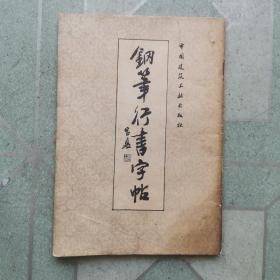 中国建筑工业出版社
鋼筆行書字帖